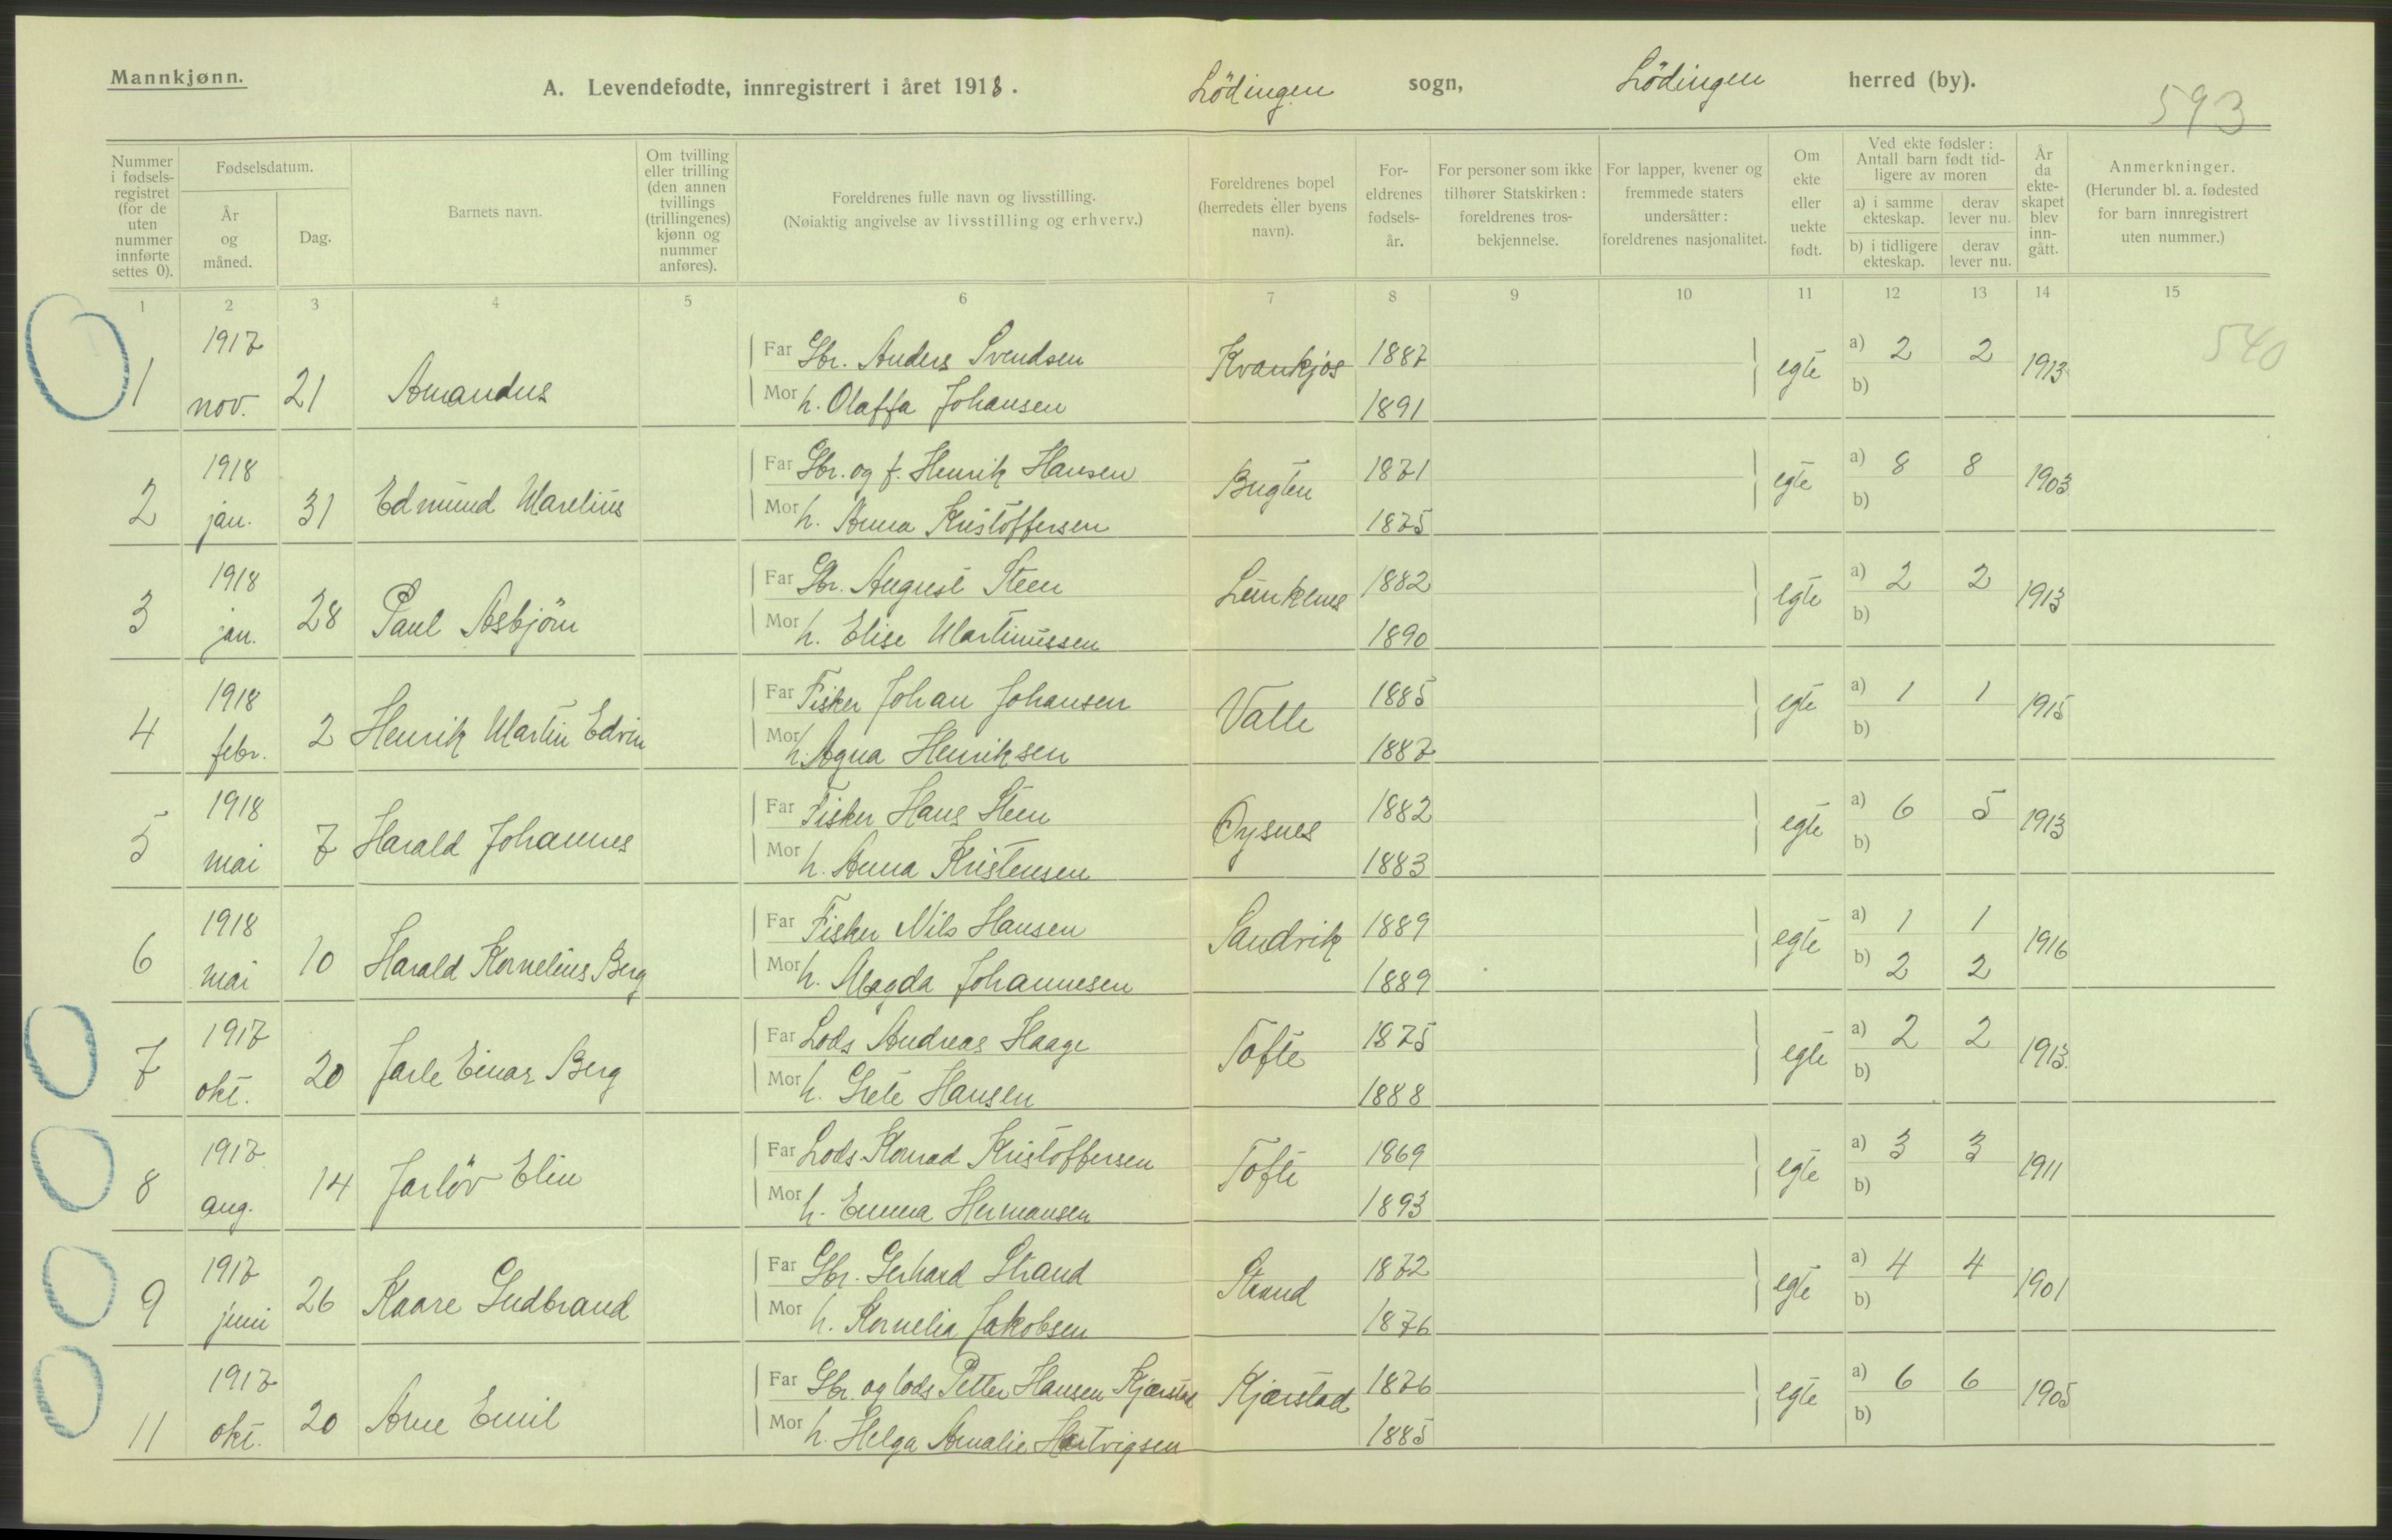 Mannkjønn.
A. Levendefødte, innregistrert i året 1918. Lödingen sogn, Lödingen herred (by).
593
Nummer i fødselsregistret (for de uten nummer innførte settes 0).
Fødselsdatum.
År og måned.
Dag.
Barnets navn.
Om tvilling eller trilling (den annen tvillings (trillingenes) kjønn og nummer anføres).
Foreldrenes fulle navn og livsstilling.
(Nøiaktig angivelse av livsstilling og erhverv.)
Foreldrenes bopel (herredets eller byens navn).
Foreldrenes fødselsår.
For personer som ikke tilhører Statskirken: foreldrenes trosbekjennelse.
For lapper, kvener og fremmede staters undersåtter: foreldrenes nasjonalitet.
Om ekte eller uekte født.
Ved ekte fødsler: Antall barn født tidligere av moren
a) i samme ekteskap. derav lever nu.
b) i tidligere ekteskap. derav lever nu.
År da ekteskapet blev inngått.
Anmerkninger.
(Herunder bl. a. fødested for barn innregistrert uten nummer.)
1 2 3 4 5 6 7 8 9 10 11 12 13 14 15
540
1 1917 nov. 21 Amandus
Far Gbr. Anders Svendsen Kvankjos 1887 egte a) 2 2 1913
Mor h. Olaffa Johansen 1891 b)
2 1918 jan. 31 Edmund Marelius
Far Gbr. og f. Henrik Hansen Bugten 1871 egte a) 8 8 1903
Mor h. Anna Kristoffersen 1875 b)
3 1918 jan. 28 Paul Asbjörn
Far Gbr. August Steen 1882 egte a) 2 2 1913
Mor h. Elise Martinussen 1890 b)
4 1918 febr. 2 Henrik Martin Edvin
Far Fisker Johan Johansen Valle 1885 egte a) 1 1 1915
Mor h. Agna Henriksen 1887 b)
5 1918 mai 7 Harald Johannes
Far Fisker Hans Steen Öysnes 1882 egte a) 6 5 1913
Mor h. Anna Kristensen 1883 b)
6 1918 mai 10 Harald Kornelius Berg
Far Fisker Nils Hansen Sandvik 1889 egte a) 1 1 1916
Mor h. Magda Johannesen 1889 b) 2 2
7 1917 okt. 20 Jarle Einar Berg
Far Lods Andreas Haage Tofte 1875 egte a) 2 2 1913
Mor h. Grete Hansen 1888 b)
8 1917 aug. 14 Jarlöv Elin
Far Lods Konrad Kristoffersen Tofte 1869 egte a) 3 3 1911
Mor h. Emma Hermansen 1893 b)
9 1917 juni 26 Kaare Gudbrand
Far Gbr. Gerhard Strand Strand 1872 egte a) 4 4 1901
Mor h. Kornelia Jakobsen 1876 b)
11 1917 okt. 20 Arne Emil
Far Gbr. og lods Petter Hansen Kjærstad Kjærstad 1876 egte a) 6 6 1905
Mor h. Helga Amalie Hartvigsen 1885 b)